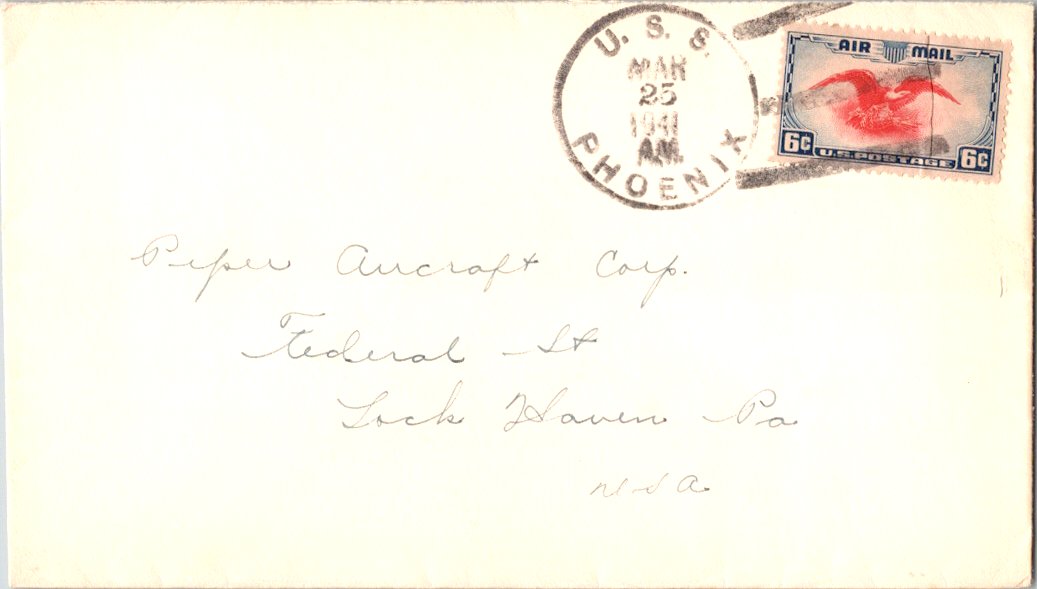 U. S. S.
MAR
25
1941
A.M.
PHOENIX
AIR MAIL
6¢ U.S. POSTAGE 6¢
Piper Aircraft Corp.
Federal St
Lock Haven Pa
USA